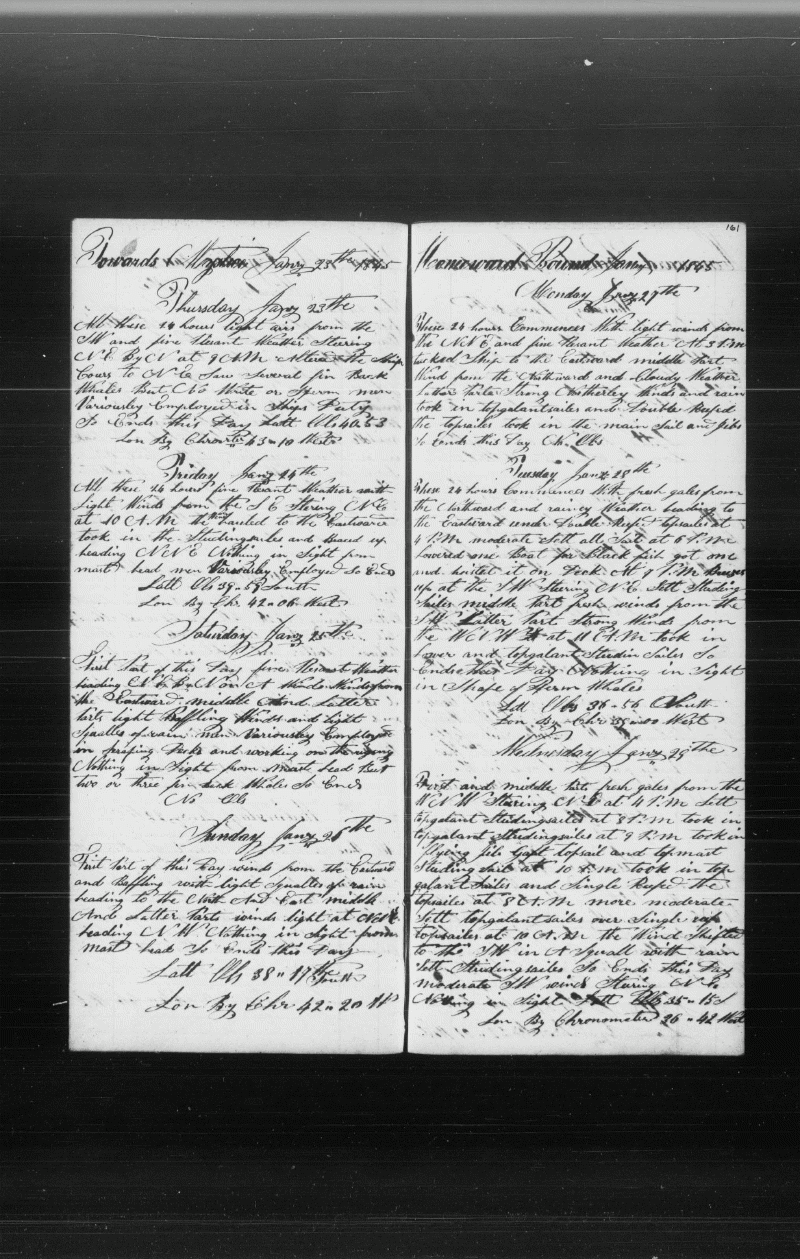 Towards Mystic Jany 23th 1845
Thursday Jany 23th
All these 24 hours light airs from the
SW and fine Plesant Weather Steering
N E By N at 9 A M Altered the Ship
Cours to N E Saw Several fin Back
Whales But No White or Sperm men
Variousley Employed in Ships Duty
So Ends this Day Latt Obs 40=53
Lon By Chro 43=10 West
Friday Jany 24th
All these 24 hours fine Plesant Weather with
Light Winds from the S E Stering N E
at 10 A M the hauled to the Eastward
took in the Studingsailes and Braced up
heading N N E Nothing in Sight from
mast head men Variousley Employed So Ends
Latt Obs 39=59 South
Lon By Chr 42=06 West
Saturday Jany 25th
First Part of this Day fine Plesant Weather
heading N E By N on A Wind Winds from
the Eastward middle And Latter
Parts light Baffling Winds and light
Squalles of rain men Variousley Employed
on scraping Decks and working on the riging
Nothing in Sight from mast head But
two or three fin back Whales So Ends
No Obs
Sunday Jany 26th
First Part of this Day winds from the Eastward
and Baffling with light Squalles of rain
heading to the North And East middle
And Latter Parts winds light at N E
heading N W Nothing in Sight from
mast head So Ends this Day
Latt Obs 38=17 South
Lon By Chr 42=20 W
161
Homeward Bound Jany 1845
Monday Jany 27th
These 24 hours Commences With light winds from
the N N E and fine Plesant Weather At 3 P.M
tacked Ship to the Eastward middle Part
Wind from the Northward and Cloudy Weather
Latter Parts Strong Northerley Winds and rain
took in topgalantsailes and Double Reefed
the topsailes took in the main Sail and Jibs
So Ends this Day No Obs
Tuesday Jany 28th
These 24 hours Commences With fresh gales from
the Northward and rainey Weather heading to
the Eastward under Double Reefed topsailes at
4 P.M moderate Sett all Sail at 6 P.M
Lowered one Boat for Black fish got one
and hoisted it on Deck At 9 P.M
up at the S W Steering N E Sett Studing
Sailes middle Part fresh winds from the
S W Latter Part Strong Winds from
the W N W at 11 A M took in
lower and topgalant Studin Sailes So
Endes this Day Nothing in Sight
in Shape of Sperm Whales
Latt Obs 36=56 South
Lon By Chr 39=00 West
Wednesday Jany 29th
First and middle Parts fresh gales from the
W N W Stering N E at 4 P.M Sett
topgalant Studingsailes at 8 P.M took in
topgalant Studingsailes at 9 P.M took in
flying jib Gaft topsail and topmast
Studingsail at 10 P.M took in top-
galantsailes and Single Reefed the
topsailes at 8 A.M more moderate
Sett topgalantsailes over Single reef
topsailes at 10 A.M the Wind Shifted
to the S W in A Squall with rain
Sett Studingsailes So Ends this Day
moderate S W winds Stering N E
Nothing in Sight Latt Obs 35=15 S
Lon By Chronometer 36=42 West